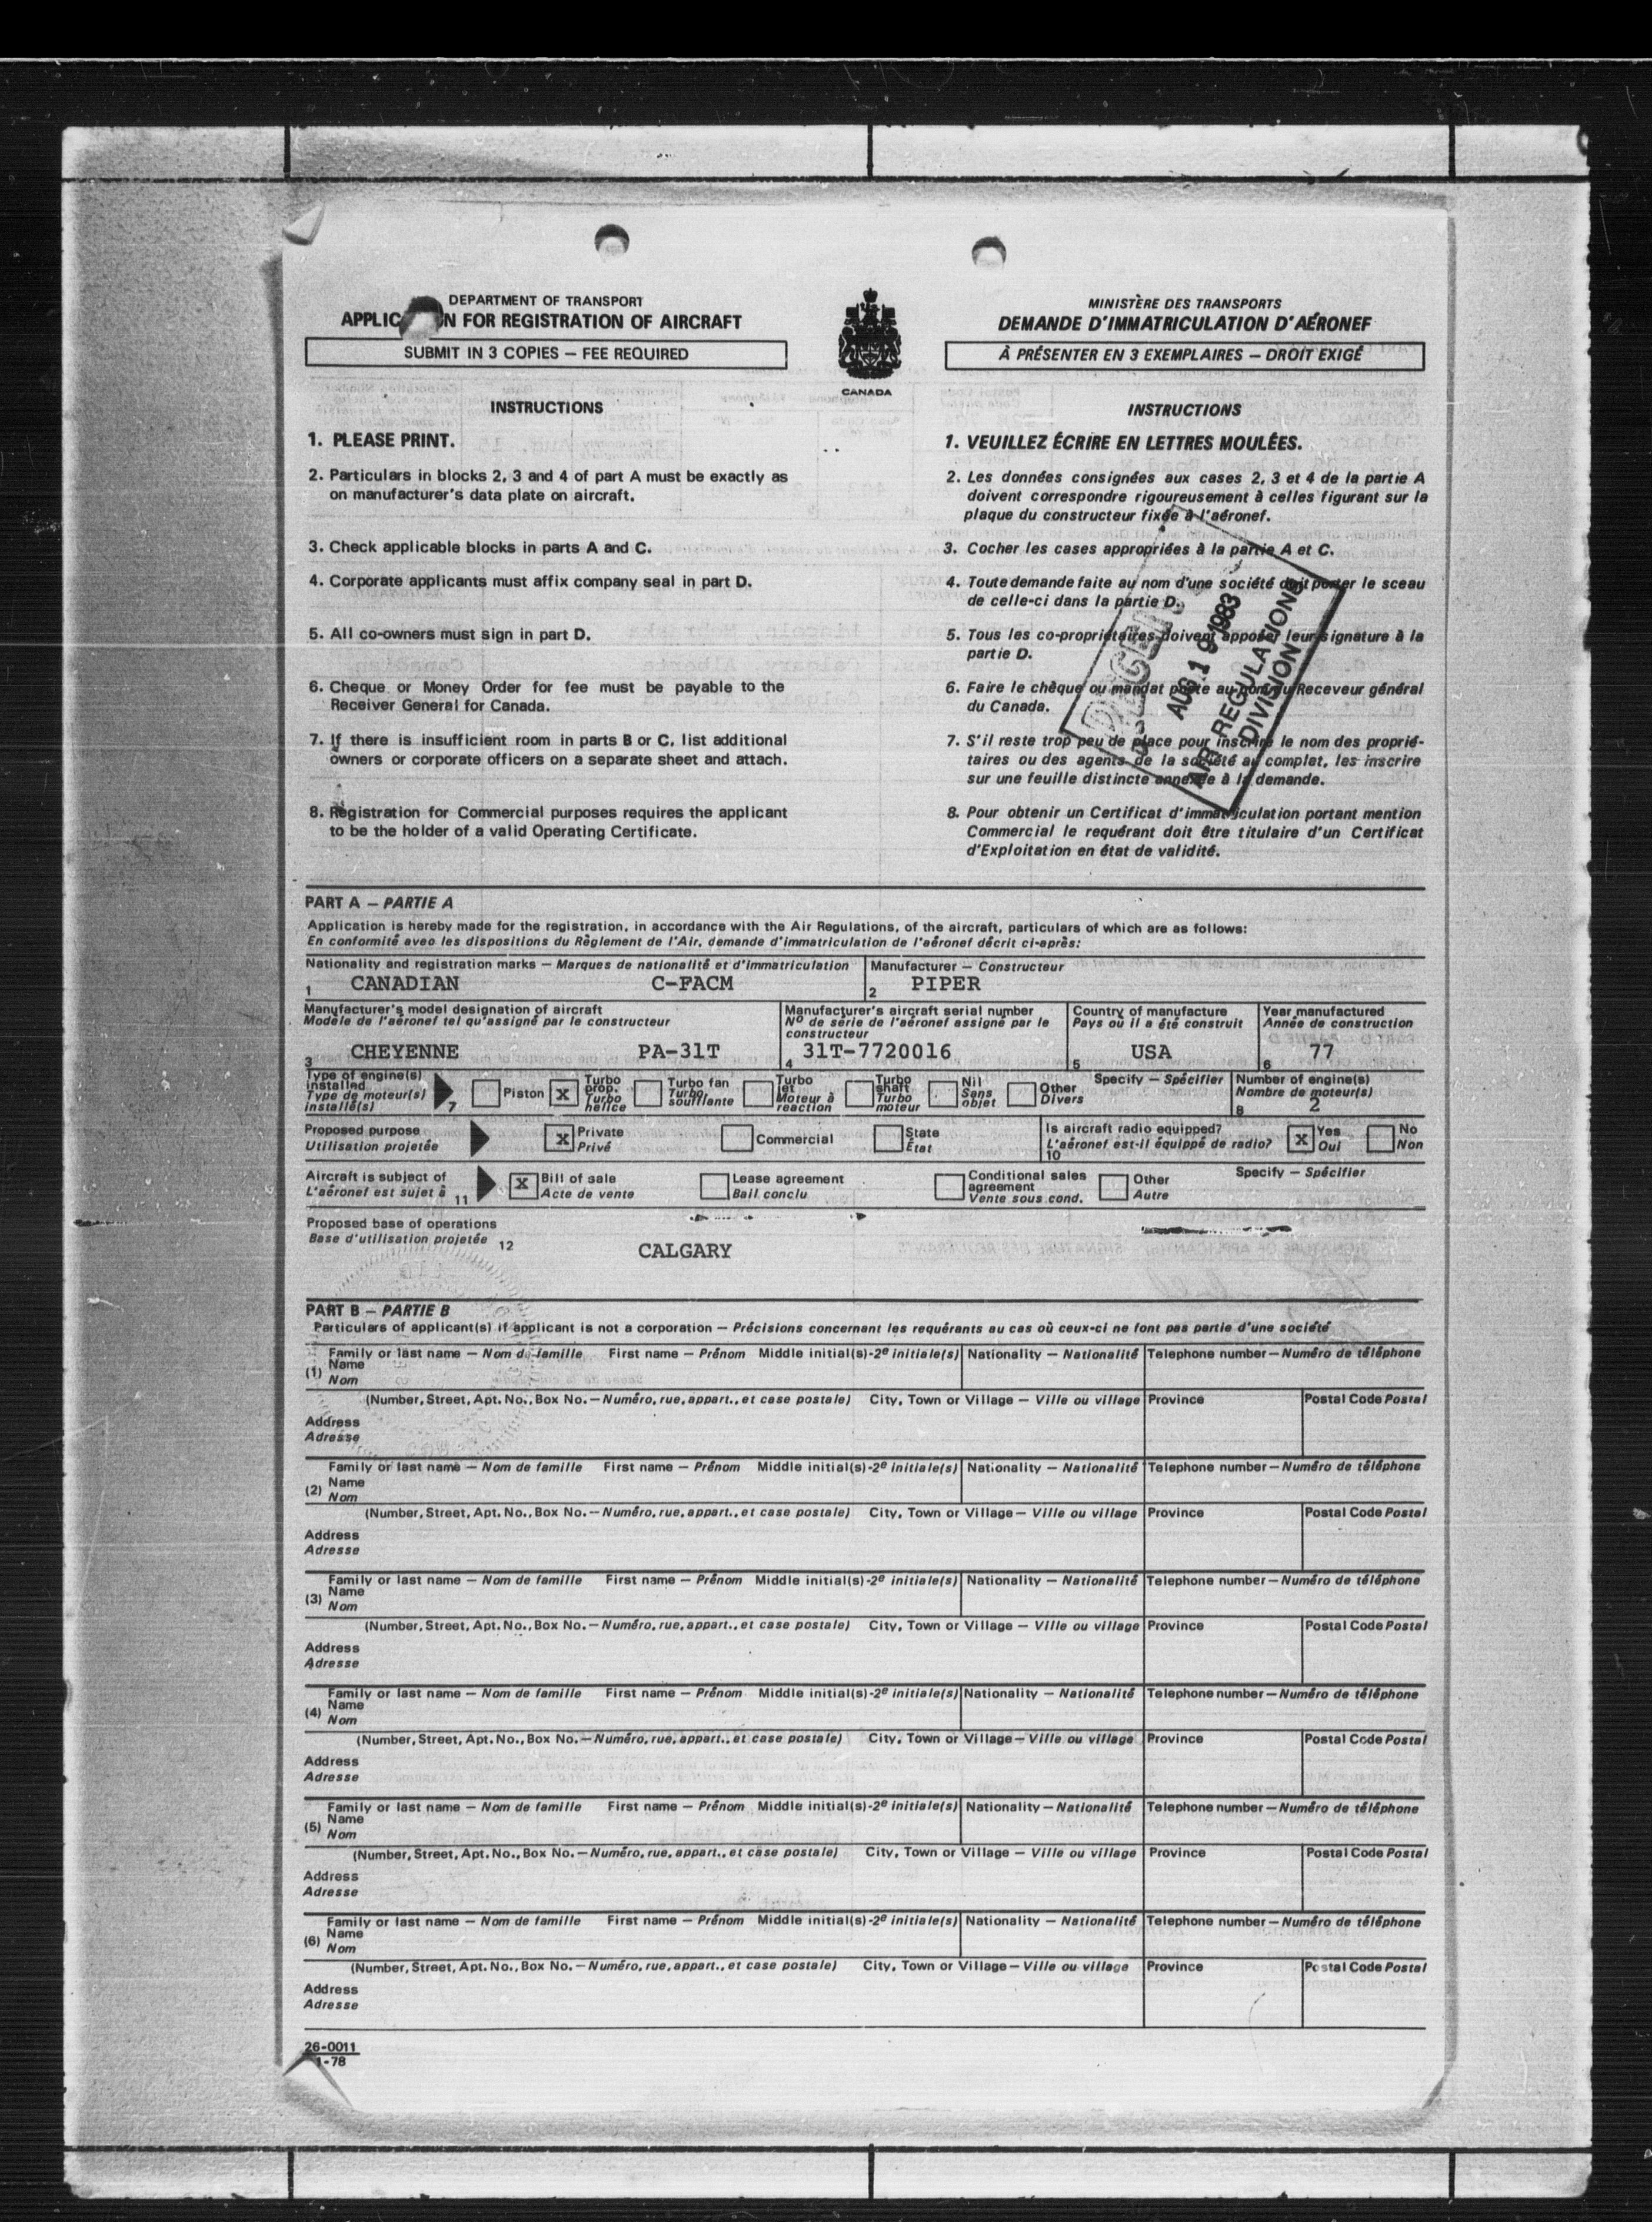 DEPARTMENT OF TRANSPORT
APPLIC N FOR REGISTRATION OF AIRCRAFT
SUBMIT IN 3 COPIES — FEE REQUIRED
CANADA
MINISTÈRE DES TRANSPORTS
DEMANDE D'IMMATRICULATION D'AÉRONEF
À PRÉSENTER EN 3 EXEMPLAIRES — DROIT EXIGÉ
INSTRUCTIONS
1. PLEASE PRINT.
2. Particulars in blocks 2, 3 and 4 of part A must be exactly as
on manufacturer's data plate on aircraft.
3. Check applicable blocks in parts A and C.
4. Corporate applicants must affix company seal in part D.
5. All co-owners must sign in part D.
6. Cheque or Money Order for fee must be payable to the
Receiver General for Canada.
7. If there is insufficient room in parts B or C, list additional
owners or corporate officers on a separate sheet and attach.
8. Registration for Commercial purposes requires the applicant
to be the holder of a valid Operating Certificate.
INSTRUCTIONS
1. VEUILLEZ ÉCRIRE EN LETTRES MOULÉES.
2. Les données consignées aux cases 2, 3 et 4 de la partie A
doivent correspondre rigoureusement à celles figurant sur la
plaque du constructeur fixée à l'aéronef.
3. Cocher les cases appropriées à la partie A et C.
4. Toute demande faite au nom d'une société doit porter le sceau
de celle-ci dans la partie D.
5. Tous les co-propriétaires doivent apposer leur signature à la
partie D.
6. Faire le chèque ou mandat poste au nom du Receveur général
du Canada.
7. S'il reste trop peu de place pour inscrire le nom des proprié-
taires ou des agents de la société au complet, les inscrire
sur une feuille distincte annexée à la demande.
8. Pour obtenir un Certificat d'immatriculation portant mention
Commercial le requérant doit être titulaire d'un Certificat
d'Exploitation en état de validité.
AUG 19 1983
AIR REGULATIONS
DIVISION
PART A — PARTIE A
Application is hereby made for the registration, in accordance with the Air Regulations, of the aircraft, particulars of which are as follows:
En conformité avec les dispositions du Règlement de l'Air, demande d'immatriculation de l'aéronef décrit ci-après:
Nationality and registration marks — Marques de nationalité et d'immatriculation
1 CANADIAN C-FACM
Manufacturer — Constructeur
2 PIPER
Manufacturer's model designation of aircraft
Modèle de l'aéronef tel qu'assigné par le constructeur
3 CHEYENNE PA-31T
Manufacturer's aircraft serial number
Nº de série de l'aéronef assigné par le
constructeur
4 31T-7720016
Country of manufacture
Pays où il a été construit
5 USA
Year manufactured
Année de construction
6 77
Type of engine(s)
installed
Type de moteur(s)
installé(s) 7
Piston
X Turbo
prop.
Turbo
hélice
Turbo fan
Turbo
soufflante
Turbo
jet
Moteur à
réaction
Turbo
shaft
Turbo
moteur
Nil
Sans
objet
Other
Divers
Specify — Spécifier
Number of engine(s)
Nombre de moteur(s)
8 2
Proposed purpose
Utilisation projetée
X Private
Privé
Commercial
State
État
Is aircraft radio equipped?
L'aéronef est-il équippé de radio?
10
X Yes
Oui
No
Non
Aircraft is subject of
L'aéronef est sujet à 11
X Bill of sale
Acte de vente
Lease agreement
Bail conclu
Conditional sales
agreement
Vente sous cond.
Other
Autre
Specify — Spécifier
Proposed base of operations
Base d'utilisation projetée 12
CALGARY
PART B — PARTIE B
Particulars of applicant(s) if applicant is not a corporation — Précisions concernant les requérants au cas où ceux-ci ne font pas partie d'une société
Family or last name — Nom de famille First name — Prénom Middle initial(s)-2e initiale(s) Nationality — Nationalité Telephone number — Numéro de téléphone
(1) Name
Nom
(Number, Street, Apt. No., Box No. — Numéro, rue, appart., et case postale) City, Town or Village — Ville ou village Province Postal Code Postal
Address
Adresse
Family or last name — Nom de famille First name — Prénom Middle initial(s)-2e initiale(s) Nationality — Nationalité Telephone number — Numéro de téléphone
(2) Name
Nom
(Number, Street, Apt. No., Box No. — Numéro, rue, appart., et case postale) City, Town or Village — Ville ou village Province Postal Code Postal
Address
Adresse
Family or last name — Nom de famille First name — Prénom Middle initial(s)-2e initiale(s) Nationality — Nationalité Telephone number — Numéro de téléphone
(3) Name
Nom
(Number, Street, Apt. No., Box No. — Numéro, rue, appart., et case postale) City, Town or Village — Ville ou village Province Postal Code Postal
Address
Adresse
Family or last name — Nom de famille First name — Prénom Middle initial(s)-2e initiale(s) Nationality — Nationalité Telephone number — Numéro de téléphone
(4) Name
Nom
(Number, Street, Apt. No., Box No. — Numéro, rue, appart., et case postale) City, Town or Village — Ville ou village Province Postal Code Postal
Address
Adresse
Family or last name — Nom de famille First name — Prénom Middle initial(s)-2e initiale(s) Nationality — Nationalité Telephone number — Numéro de téléphone
(5) Name
Nom
(Number, Street, Apt. No., Box No. — Numéro, rue, appart., et case postale) City, Town or Village — Ville ou village Province Postal Code Postal
Address
Adresse
Family or last name — Nom de famille First name — Prénom Middle initial(s)-2e initiale(s) Nationality — Nationalité Telephone number — Numéro de téléphone
(6) Name
Nom
(Number, Street, Apt. No., Box No. — Numéro, rue, appart., et case postale) City, Town or Village — Ville ou village Province Postal Code Postal
Address
Adresse
26-0011
1-78